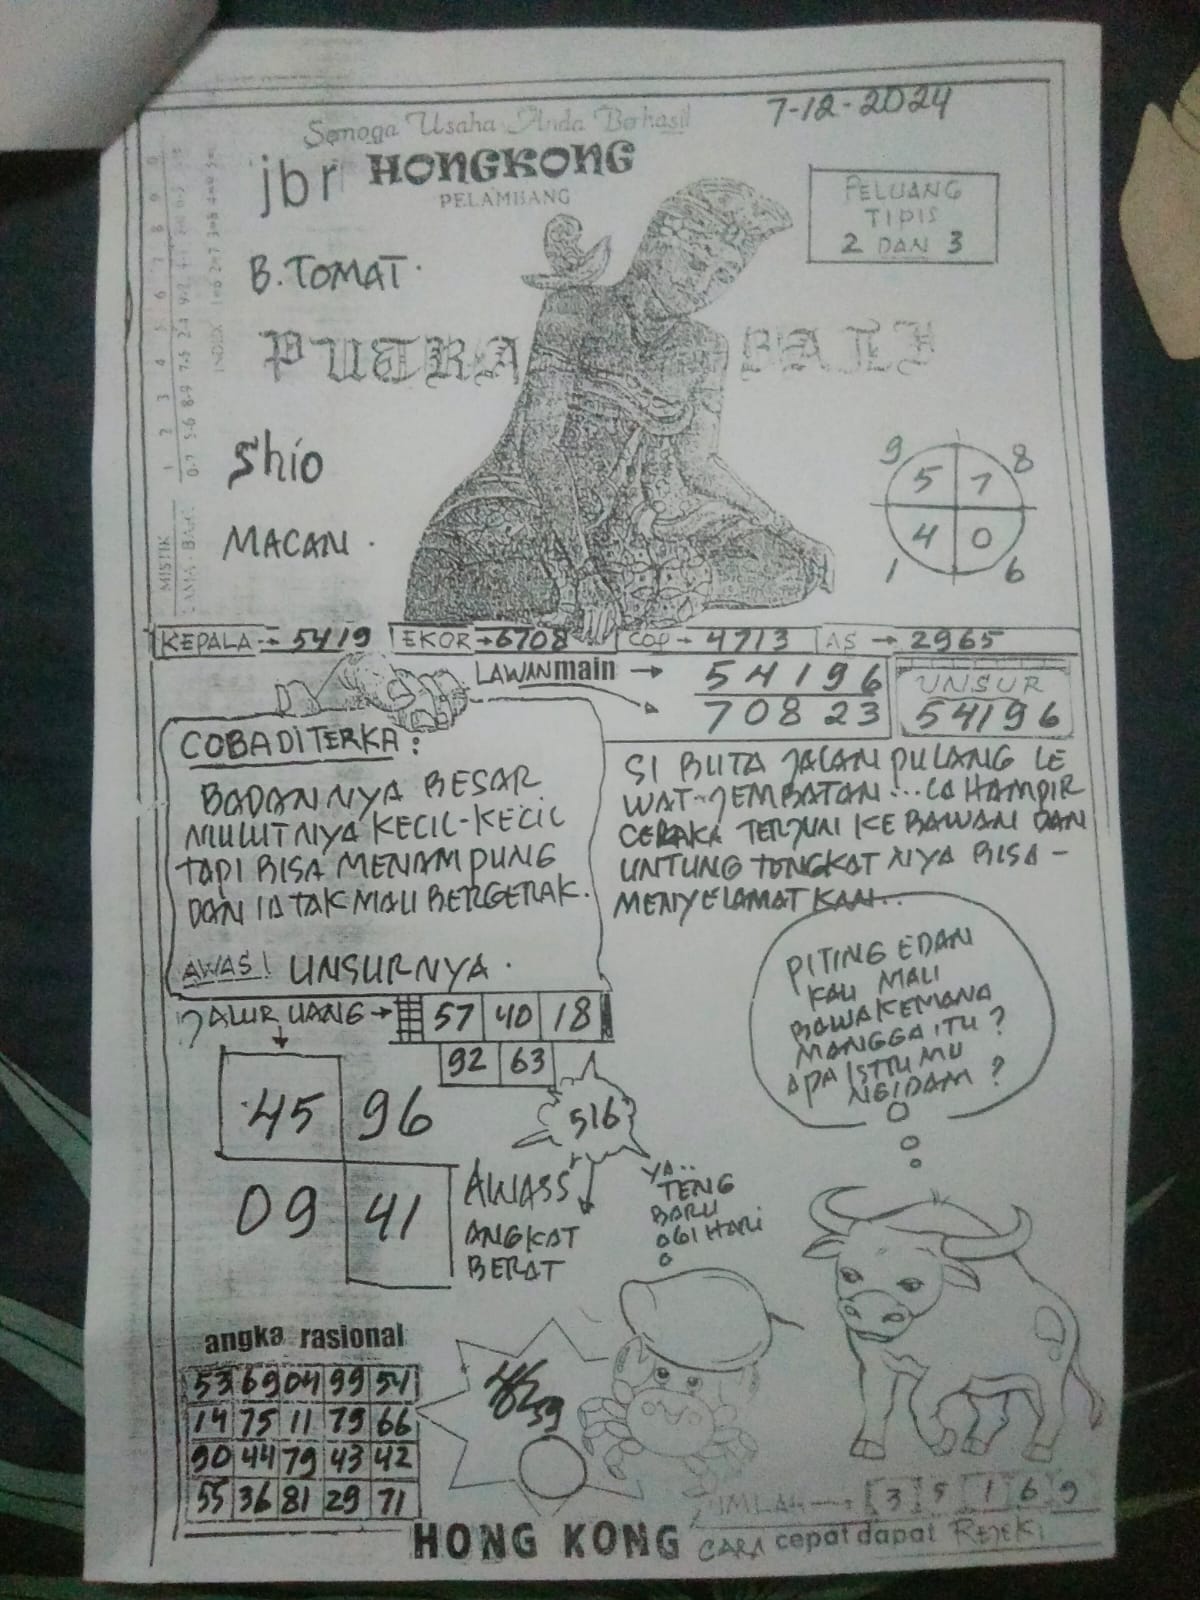 7-12-2024
Semoga Usaha Anda Berhasil
jbr HONGKONG
PELAMBANG
PELUANG
TIPIS
2 DAN 3
B. TOMAT.
PUTRA BALI
Shio
MACAN.
MISTIK
INDEX
9 8
5 7
4 0
1 6
KEPALA → 5419 EKOR → 6708 COP → 4713 AS → 2965
LAWAN main → 54196
70823
UNSUR
54196
COBA DITERKA :
BADANNYA BESAR
MULUTNYA KECIL-KECIL
TAPI BISA MENAMPUNG
DAN IA TAK MAU BERGERAK.
AWAS! UNSURNYA.
SI BUTA JALAN PULANG LE
WAT JEMBATAN... IA HAMPIR
CELAKA TERJUN KE BAWAH DAN
UNTUNG TONGKAT NYA BISA -
MENYELAMAT KAN...
PITING EDAN
KAU MAU
BAWA KEMANA
MANGGA ITU ?
APA ISTTU MU
NGIDAM ?
JALUR UANG → 57 40 18
92 63
45 96
516
09 41
AWASS
ANGKAT
BERAT
YA..
TENG
BARU
HARI
angka rasional
53 69 04 99 54
14 75 11 79 66
90 44 79 43 42
55 36 81 29 71
JUMLAH → 3 5 1 6 9
HONG KONG CARA cepat dapat REJEKI